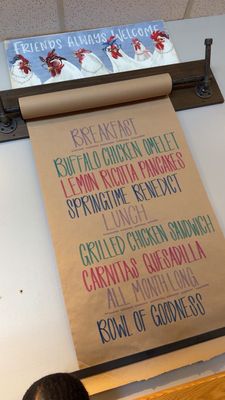 FRIENDS ALWAYS WELCOME
BREAKFAST
BUFFALO CHICKEN OMELET
LEMON RICOTTA PANCAKES
SPRINGTIME BENEDICT
LUNCH
GRILLED CHICKEN SANDWICH
CARNITAS QUESADILLA
ALL MONTH LONG
BOWL OF GOODNESS